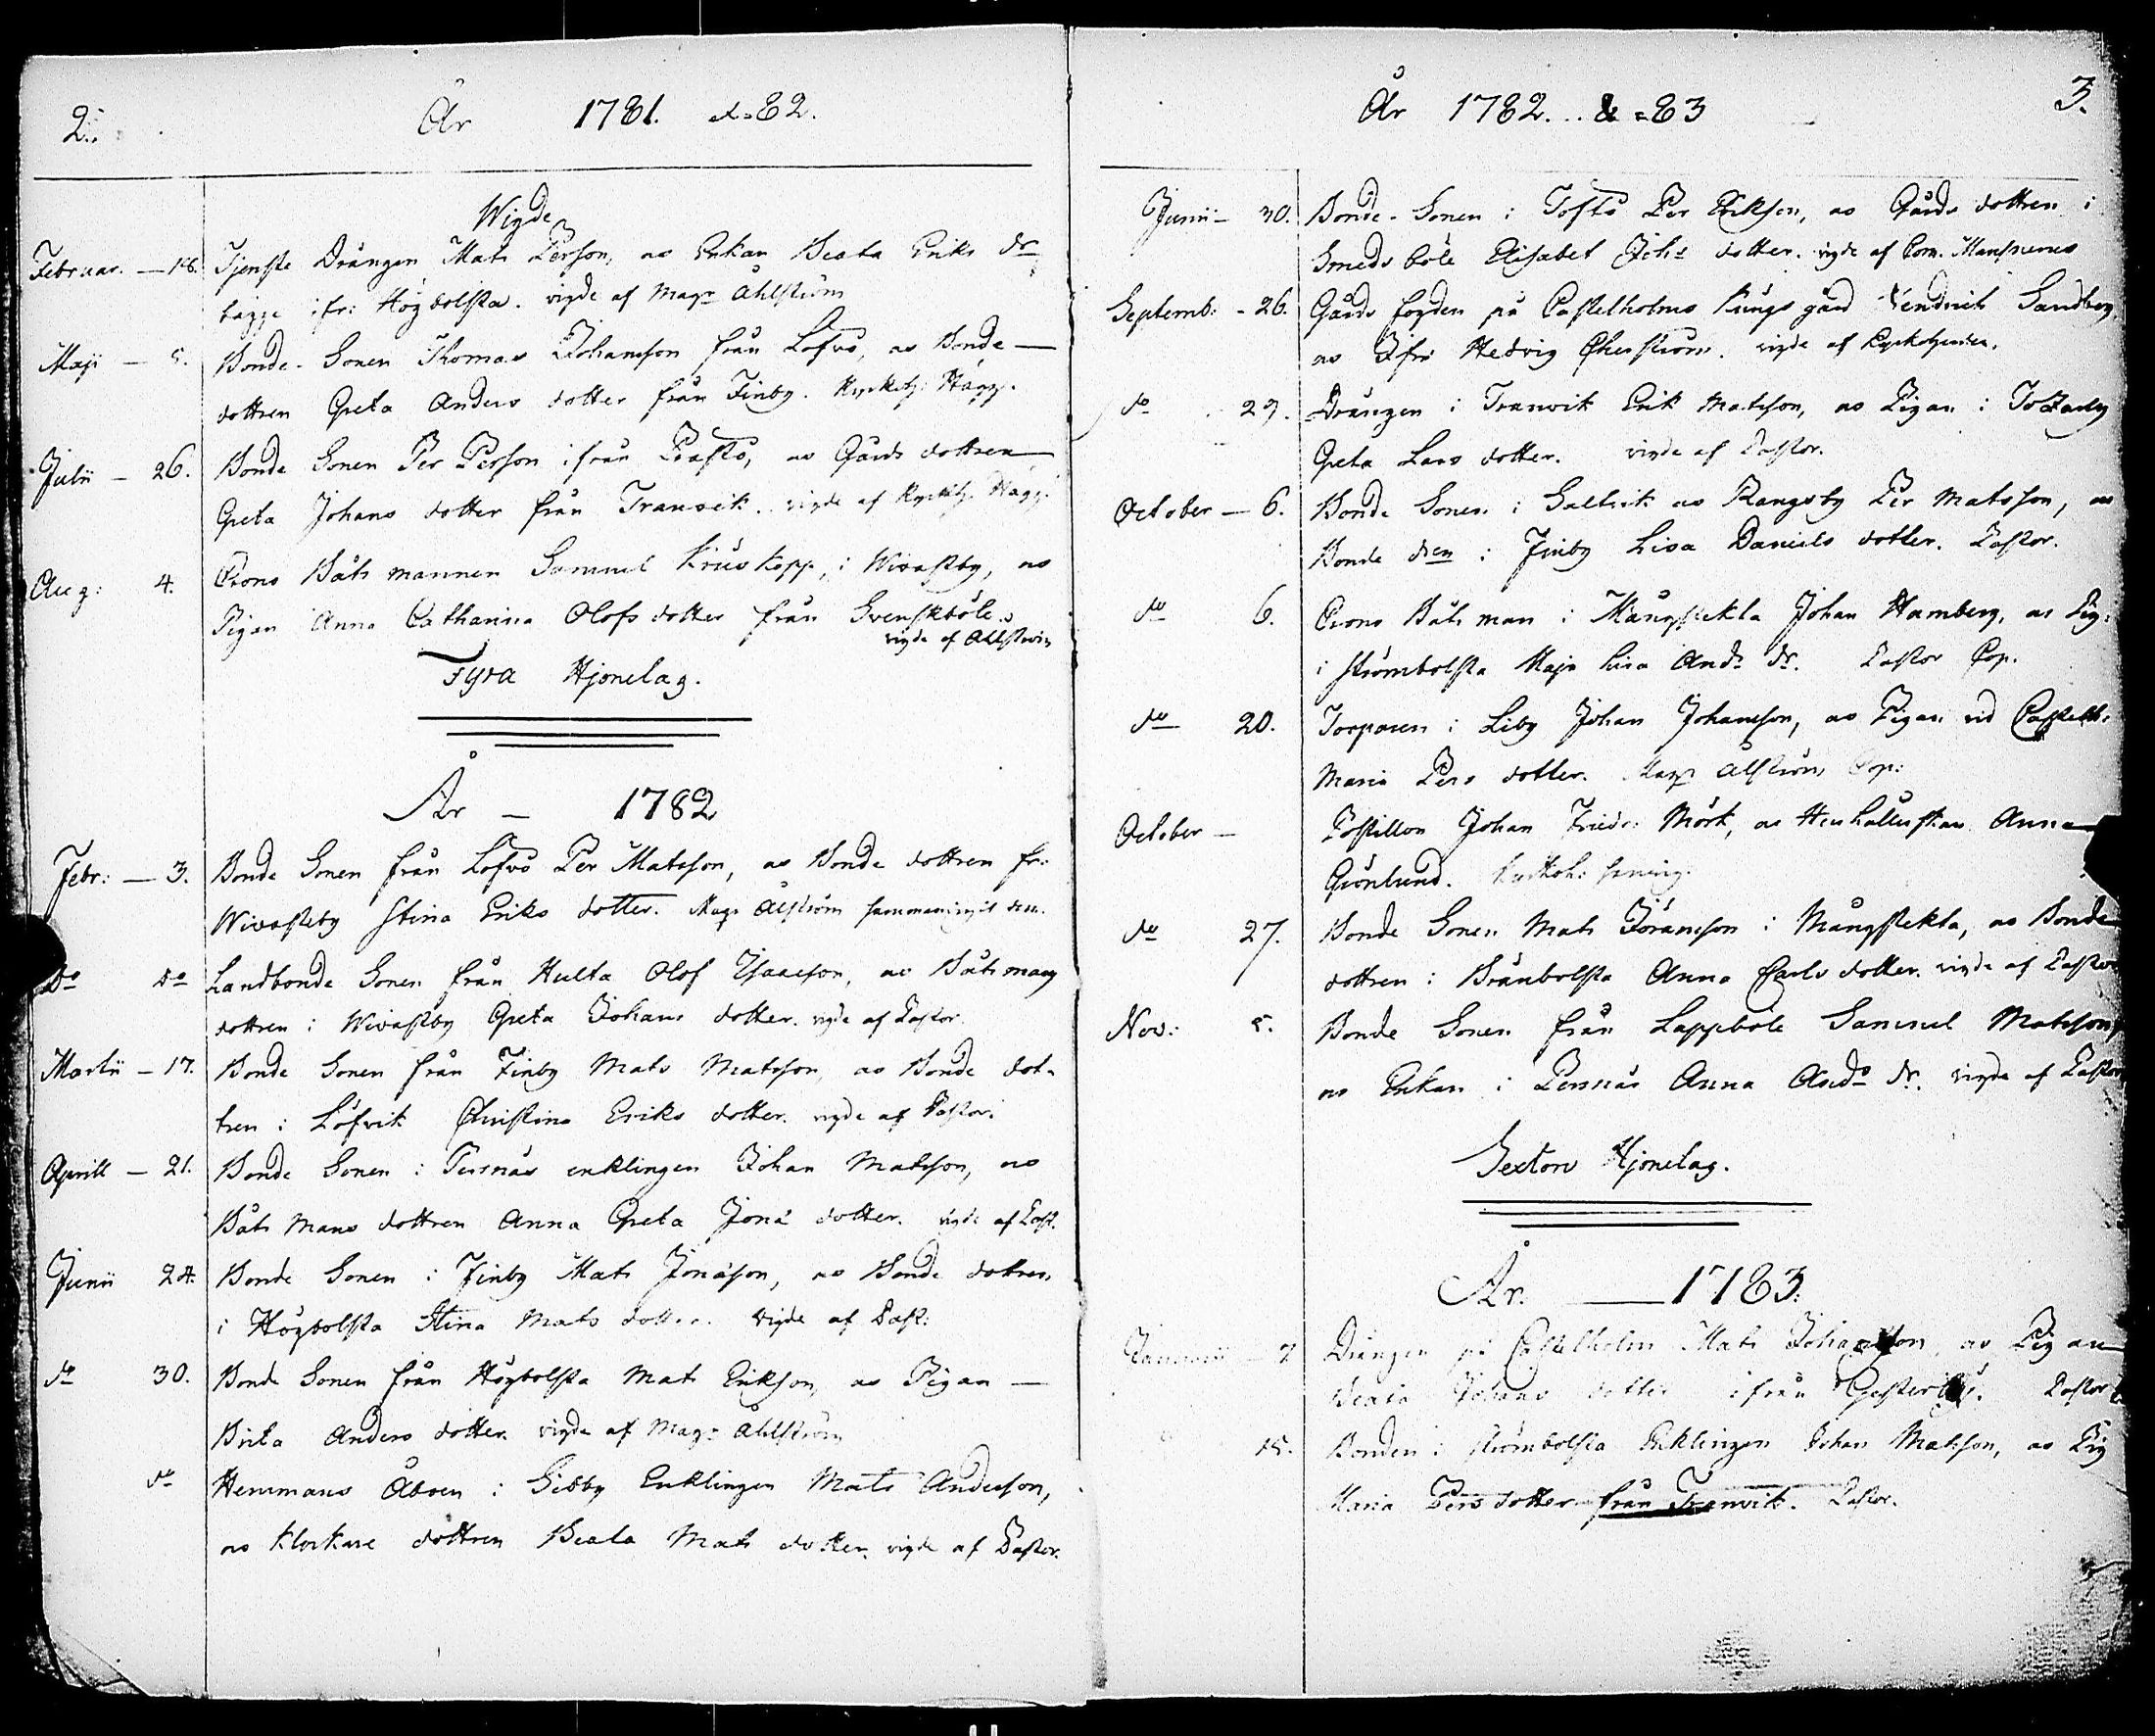 2.
År 1781. & 82.
Wigde
Februar. — 18. Tjenste Drängen Mats Person, os Enkan Beata Eriks dr
bägge ifr: Högbolsta. vigde af Magr Åhlström
Maji — 5. Bonde-Sonen Thomas Johansson från Lofvö, os Bonde—
dottren Greta Anders dotter från Finby. Kyrkhj: Hägg.
Julii — 26. Bonde Sonen Per Person ifrån Prästö, os Gårds dottren
Greta Johans dotter från Tranvik. vigde af Kyrkhj. Hägg:
Aug: 4. Crono Båtsmannen Samuel Kruskopp, i Wivastby, os
Pigan Anna Catharina Olofs dotter från Svenskböle.
vigde af Ahlström
Fyra Hjonelag.
År — 1782
Febr: — 3. Bonde Sonen från Lofvö Per Matsson, os Bonde dottren fr:
Wivasteby Stina Eriks dotter. Magr Alström sammanvigit dem.
Do Do Landbonde Sonen från Hulta Olof Isaacson, os Båtsmans
dottren i Wivastby Greta Johans dotter. vigde af Pastor.
Martii — 17. Bonde Sonen från Finby Mats Matsson, os Bonde dot-
tren i Löfvik Christina Eriks dotter. vigde af Pastor.
Aprill — 21. Bonde Sonen i Persnäs enklingen Johan Matsson, os
Båts Mans dottren Anna Greta Jonä dotter. vigde af Past.
Junii 24. Bonde Sonen i Finby Mats Jonäson, os Bonde dottren
i Högbolsta Stina Mats dotter. vigde af Past:
do 30. Bonde Sonen från Högbolsta Mats Erikson, os Pigan —
Brita Anders dotter. vigde af Magr Åhlström
do Hemmans Åboen i Gibby Enklingen Mats Andersson,
os Klockare dottren Beata Mats dotter. vigde af Pastor.
År 1782. & 83
3.
Junii — 30. Bonde-Sonen i Toftö Per Erikson, os Gårds dottren i
Smedsböle Elisabet Johs dotter. vigde af Com. Mansnerus
Septemb: - 26. Gårds fogden på Castelholms Kungsgård Hendrich Sandberg,
os Jfr Hedvig Öhrström. vigde af Kyrkohjerden.
do 29. Drängen i Tranvik Erik Matsson, os Pigan i Tosarby
Greta Lars dotter. vigde af Pastor.
October — 6. Bonde Sonen i Saltvik os Rangsby Per Matsson, os
Bonde dren i Finby Lisa Daniels dotter. Pastor.
do 6. Crono Båtsman i Mångstekta Johan Hamberg, os Pig:
i Strömbolsta Maja Lisa Ands dr. Pastor Cop.
do 20. Torparen i Liby Johan Johansson, os Pigan vid Castelh:
Maria Pers dotter. Magr Alström Cop:
October — Postillon Johan Friedr: Mörk, os Hushållerskan Anna
Grönlund. Kyrkoh:
do 27. Bonde Sonen Mats Jöransson i Mångstekta, os Bonde
dottren i Brännbolsta Anna Carls dotter. vigde af Pastor
Nov: 5. Bonde Sonen från Lappböle Samuel Matsson,
os Enkan i Persnäs Anna Ands dr. vigde af Pastor
Sexton Hjonelag.
År. — 1783.
Januarii — 7 Drängen på Castelholm Mats Johansson, os Pigan
Beata Johans dotter ifrån Pastor
15. Bonden i Strömbolsta Enklingen Johan Matsson, os Pig
Maria Pers dotter från Tranvik. Pastor.